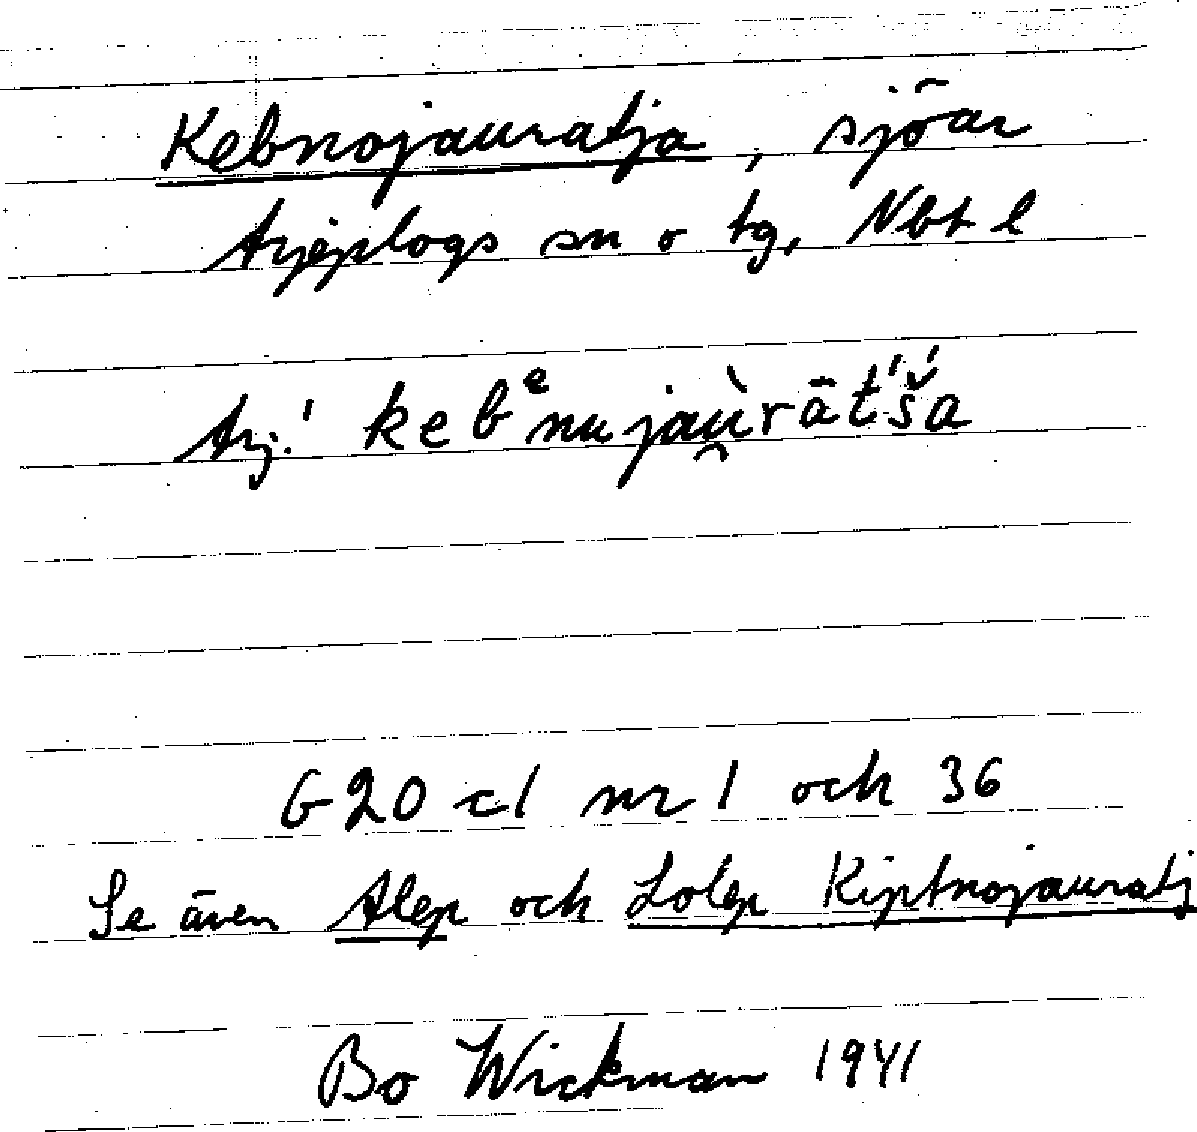 Kebnojauratja, sjöar
Arjeplogs sn o tg, Nbt l
Arj.' kebᵉnujaù̯rātʹšʹa
G 20 c1 nr 1 och 36
Se även Alep och Lolep Kiptnojauratj
Bo Wickman 1941